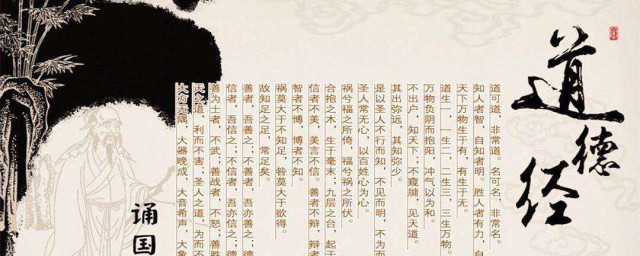 道德经
道可道，非常道。名可名，非常名。
知人者智，自知者明。胜人者有力，自
天下万物生于有，有生于无。
道生一，一生二，二生三，三生万物。
万物负阴而抱阳，冲气以为和。
不出户，知天下；不窥牖，见天道。
其出弥远，其知弥少。
是以圣人不行而知，不见而明，不为而
圣人常无心，以百姓心为心。
祸兮福之所倚，福兮祸之所伏。
合抱之木，生于毫末；九层之台，起于
信者不美，美言不信。善者不辩，辩者
智者不博，博者不知。
祸莫大于不知足，咎莫大于欲得。
故知足之足，常足矣。
善者，吾善之；不善者，吾亦善之；德
信者，吾信之；不信者，吾亦信之；德
善为士者，不武；善战者，不怒；善胜
天之道，利而不害；圣人之道，为而不
大方无隅，大器晚成，大音希声，大象
诵国